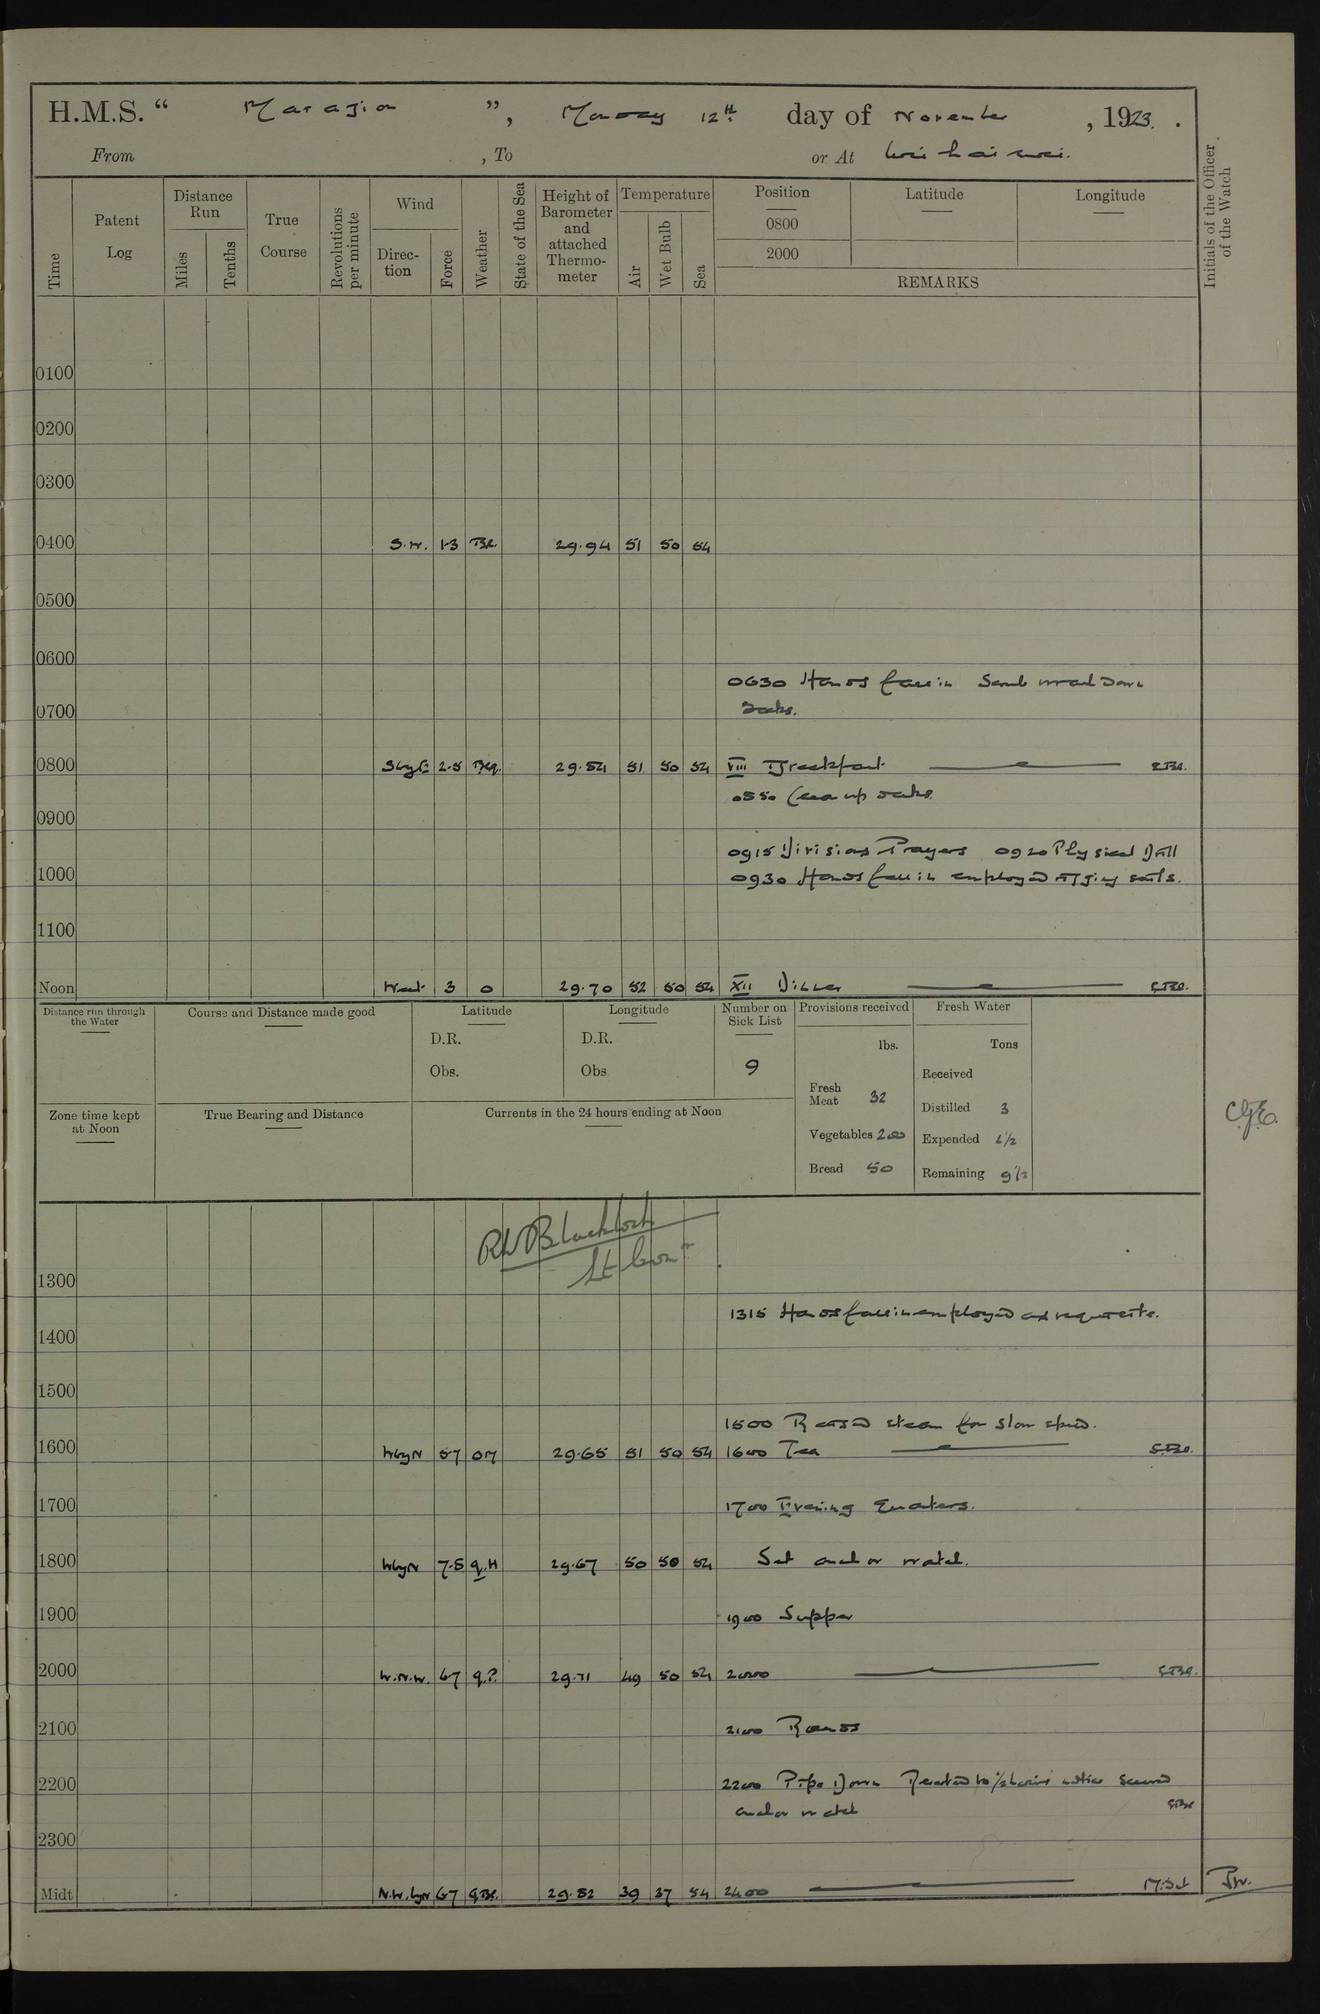 H.M.S. “ Marazion ”, Monday 12th day of November , 1923.
From , To or At Wei hai wei.
Time
Patent Log
Distance Run
Miles
Tenths
True Course
Revolutions per minute
Wind
Direction
Force
Weather
State of the Sea
Height of Barometer and attached Thermometer
Temperature
Air
Wet Bulb
Sea
Position
0800
2000
Latitude
Longitude
REMARKS
Initials of the Officer of the Watch
0100
0200
0300
0400 S.W. 1-3 29.94 51 50 54
0500
0600
0630 Hands fall in Scrub wash down
0700 decks.
0800 SbyE 2.5 51 50 54 VIII Breakfast
0850 Clean up decks.
0900
0915 Divisions Prayers 0920 Physical Drill
1000 0930 Hands fall in employed sails.
1100
Noon West 3 O 29.70 52 50 54 XII Dinner
Distance run through the Water
Course and Distance made good
Latitude
D.R.
Obs.
Longitude
D.R.
Obs
Number on Sick List
9
Provisions received
lbs.
Fresh Meat 32
Vegetables 200
Bread 50
Fresh Water
Tons
Received
Distilled 3
Expended
Remaining 9½
Zone time kept at Noon
True Bearing and Distance
Currents in the 24 hours ending at Noon
1300
1315 Hands fall in employed as requisite.
1400
1500
1500 Raised steam for slow speed.
1600 WbyN 57 29.65 51 50 54 1600 Tea
1700 1700 Evening Quarters.
1800 WbyN 29.67 50 50 54 Set anchor watch.
1900 1900 Supper
2000 W.N.W. 67 29.71 49 50 54 2000
2100 2100 Rounds
2200 2200 Pipe Down
anchor watch
2300
Midt N.W.byN 67 29.82 39 37 54 2400